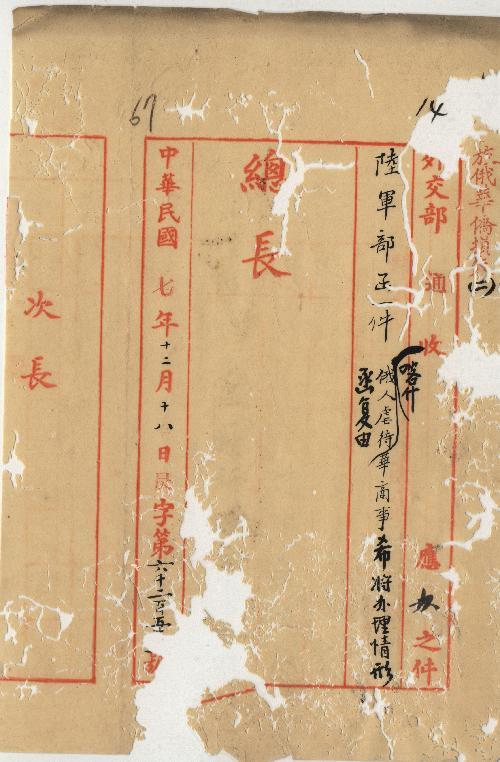 14
67
於俄華僑損
(二)
外交部通收 應 之件
陸軍部函一件
喀什
俄人虐待華商事希將办理情形
函复由
總長
中華民國七年十二月十八日 字第六十二百五
次長